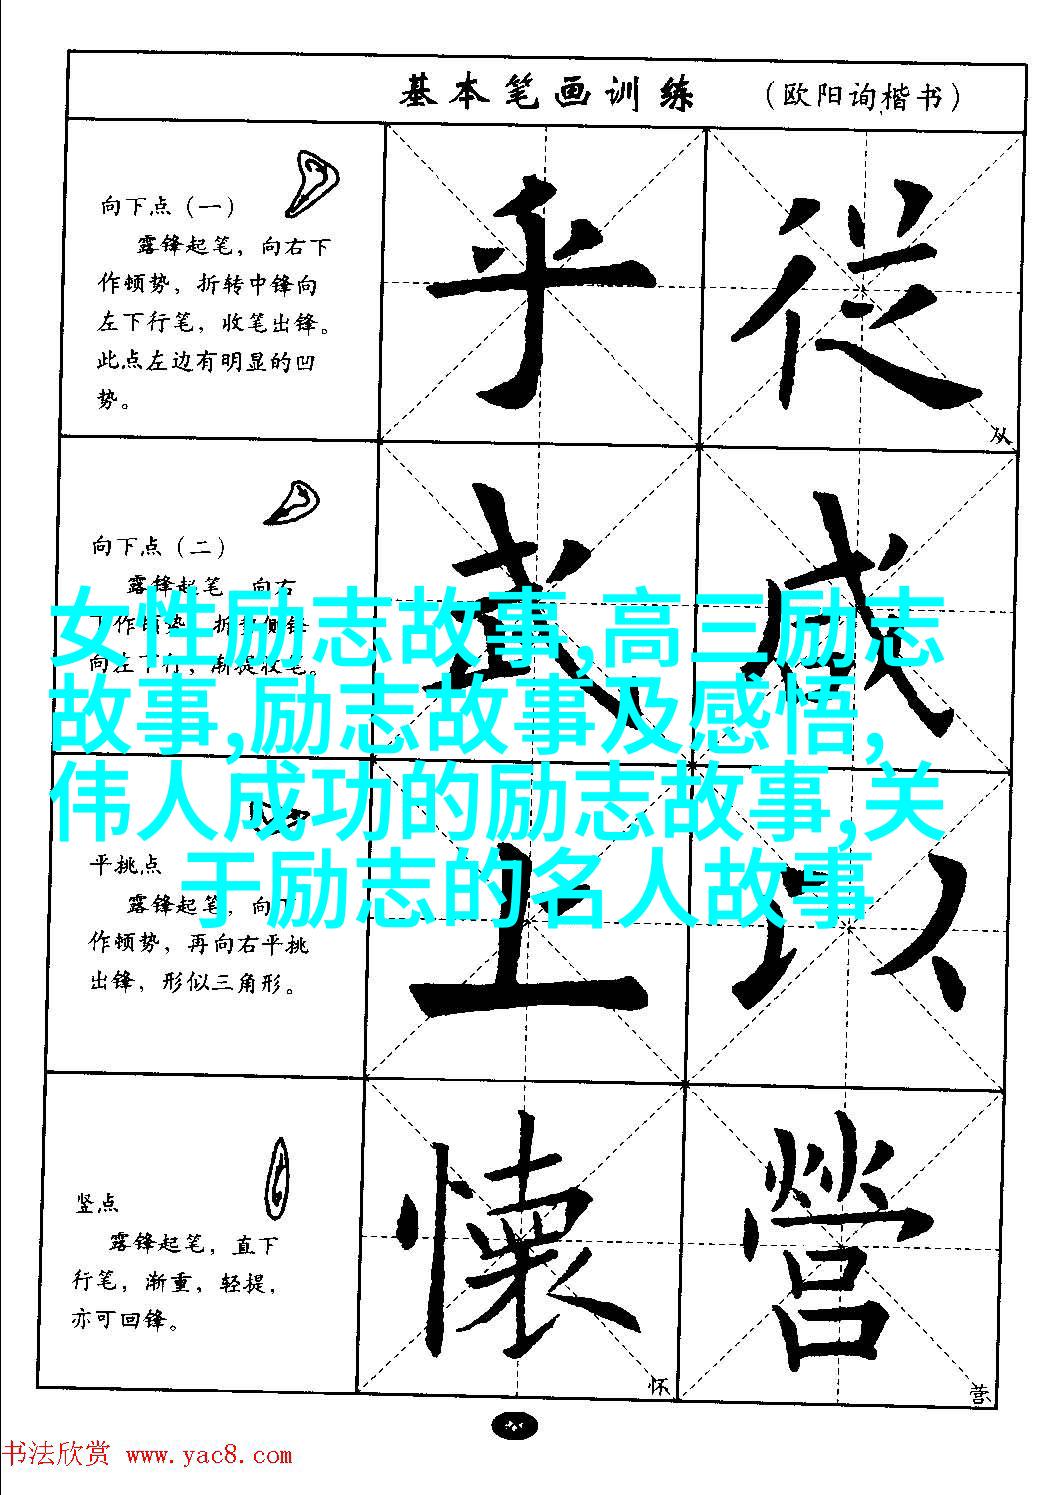 基本笔画训练 （欧阳询楷书）
向下点（一）
露锋起笔，向右下
作顿势，折转中锋向
左下行笔，收笔出锋。
此点左边有明显的凹
势。
乎 從
从
向下点（二）
露锋起笔，向右
下作顿势，折转侧锋
向左下行，渐提收笔。
武 咸
女性励志故事,高三励志
故事,励志故事及感悟,
伟人成功的励志故事,关
于励志的名人故事
平挑点
露锋起笔，向下
作顿势，再向右平挑
出锋，形似三角形。
上 以
竖点
露锋起笔，直下
行笔，渐重，轻提，
亦可回锋。
懷 營
怀 营
书法欣赏 www.yac8.com